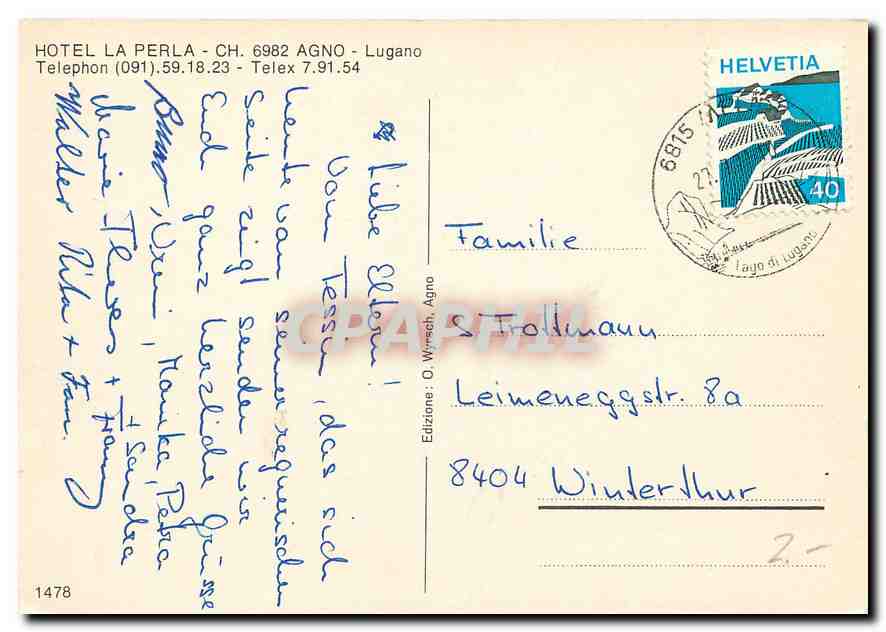 HOTEL LA PERLA - CH. 6982 AGNO - Lugano
Telephon (091).59.18.23 - Telex 7.91.54
Liebe Eltern!
Vom Tessin, das sich
heute von seiner regnerischen
Seite zeigt senden wir
Euch ganz herzliche Grüsse
Bruno, Vreni, Monika, Petra
+ Sandra
Marie-Theres + Franz
Walter Rita + Fam.
Edizione: O. Wyrsch, Agno
HELVETIA
40
6815
Lago di Lugano
Familie
S Trottmann
Leimeneggstr. 8a
8404 Winterthur
2.-
1478
CPAPHIL